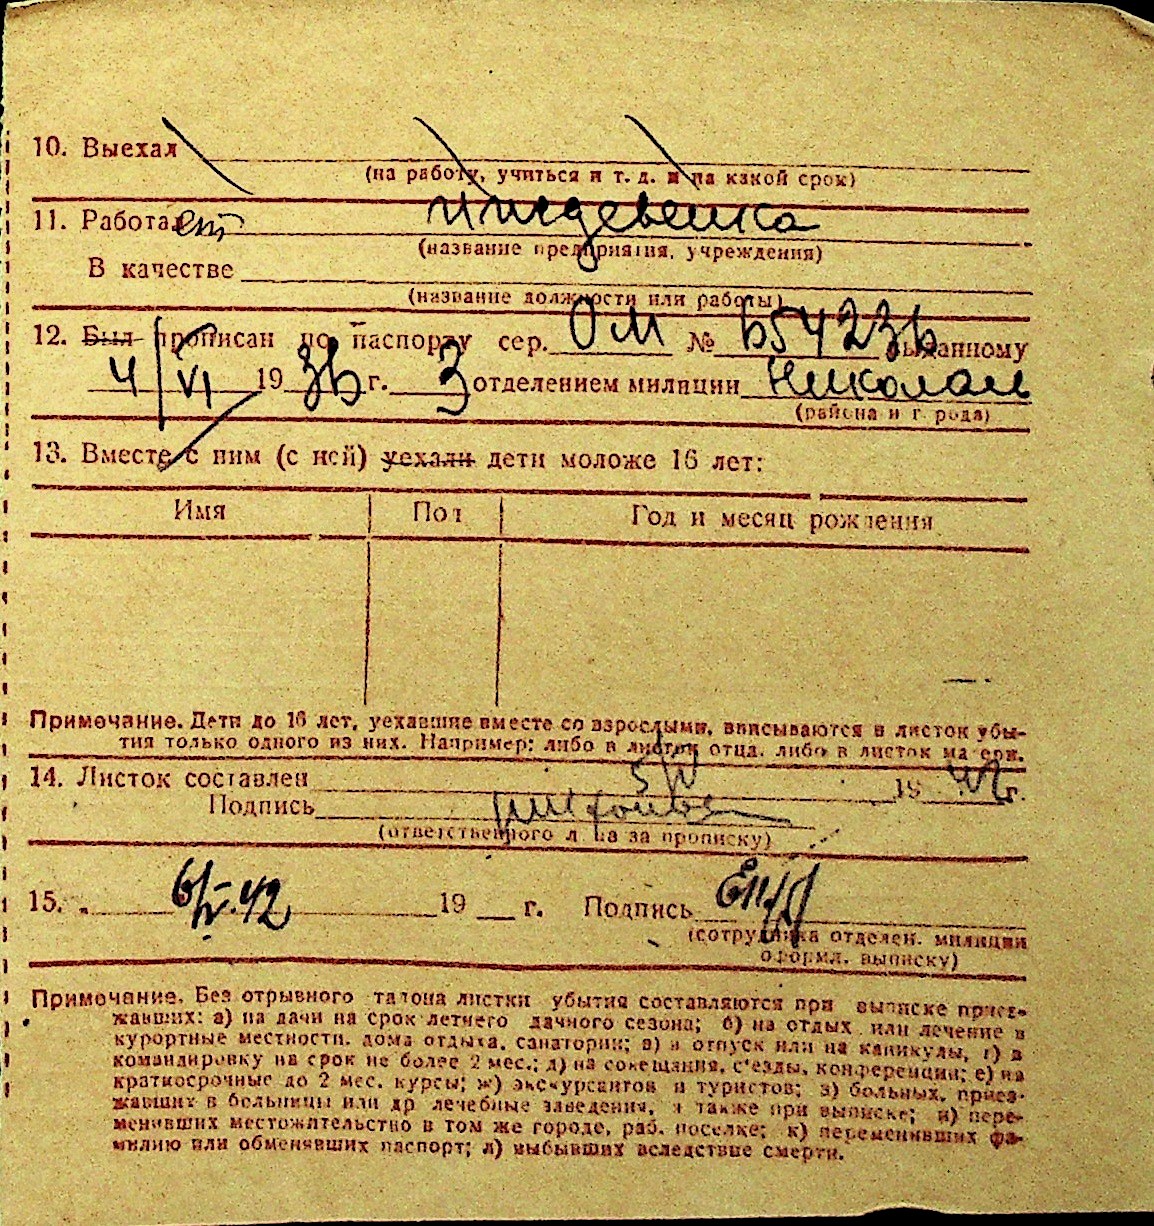 10. Выехал
(на работу, учиться и т. д. и на какой срок)
11. Работает иждевенка
(название предприятия, учреждения)
В качестве
(название должности или работы)
12. Был прописан по паспорту сер. ОМ № 654236 выданному
4/VI 1936 г. 3 отделением милиции Николаев
(района и города)
13. Вместе с ним (с ней) уехали дети моложе 16 лет:
Имя Пол Год и месяц рождения
Примечание. Дети до 16 лет, уехавшие вместе со взрослыми, вписываются в листок убы-
тия только одного из них. Например: либо в листок отца, либо в листок матери.
14. Листок составлен 5/V 1942 г.
Подпись
(ответственного лица за прописку)
15. „ 6/V-42 19 г. Подпись
(сотрудника отделен. милиции
оформл. выписку)
Примечание. Без отрывного талона листки убытия составляются при выписке приез-
жавших: а) на дачи на срок летнего дачного сезона; б) на отдых или лечение в
курортные местности, дома отдыха, санатории; в) в отпуск или на каникулы, г) в
командировку на срок не более 2 мес.; д) на совещания, с'езды, конференции; е) на
краткосрочные до 2 мес. курсы; ж) экскурсантов и туристов; з) больных, приез-
жавших в больницы или др лечебные заведения, а также при выписке; и) пере-
менивших местожительство в том же городе, раб. поселке; к) переменивших фа-
милию или обменявших паспорт; л) выбывших вследствие смерти.